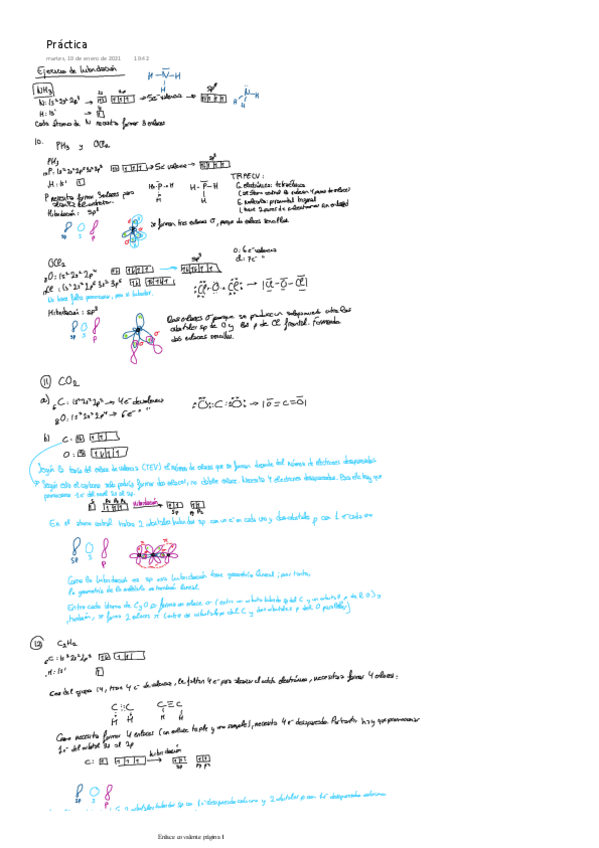 Práctica
martes, 19 de enero de 2021 19:43
Ejercicios de hibridación
H — N — H
H
NH₃
N: 1s² 2s² 2p³ → 5e⁻ valencia → sp³
H: 1s¹
Cada átomo de N necesita formar 3 enlaces
10. PH₃ y OCl₂
PH₃
P: 1s² 2s² 2p⁶ 3s² 3p³ → 5e⁻ valencia → sp³
H: 1s¹
TRPECV:
G. electrónica: tetraédrica
P necesita formar 3 enlaces para
G. molecular: piramidal trigonal
Hibridación: sp³
Se forman tres enlaces σ, porque son enlaces sencillos.
sp s p
OCl₂
sp³
O: 6e⁻ valencia
Cl: 7e⁻ "
₈O: 1s² 2s² 2p⁴
Cl: 1s² 2s² 2p⁶ 3s² 3p⁵
No hace falta promocionar, pero sí hibridar.
Hibridación: sp³
sp s p
dos enlaces sencillos.
11 CO₂
a) ₆C: 1s² 2s² 2p² → 4e⁻ de valencia
₈O: 1s² 2s² 2p⁴ → 6e⁻ " "
:O::C::O: → |O=C=O|
b) C:
O:
Según la teoría del enlace de valencia (TEV) el número de enlaces que se forman depende del número de electrones desapareados
Según esto el carbono solo podría formar dos enlaces, no obstante, Necesita 4 electrones desapareados. Para ello hay que
promocionar 1e⁻ del nivel 2s al 2p.
Hibridación
En el átomo central habrá 2 orbitales híbridos sp con un e⁻ en cada uno y dos orbitales p con 1 e⁻ cada uno
sp s p
Como la hibridación es sp esa hibridación tiene geometría lineal; por tanto,
la geometría de la molécula es también lineal.
Entre cada átomo de C y O se forma un enlace σ (entre un orbital híbrido sp del C y un orbital p de O) y
también, se forma 2 enlaces π (entre un orbital p del C y dos orbitales p del O paralelos)
12 C₂H₂
₆C: 1s² 2s² 2p²
H: 1s¹
C es del grupo 14, tiene 4 e⁻ de valencia, le faltan 4 e⁻ para alcanzar el octeto electrónico, necesitará formar 4 enlaces:
C:::C C≡C
H H H H
Como necesita formar 4 enlaces (un enlace triple y uno simple), necesita 4 e⁻ desapareados. Por tanto hay que promocionar
1e⁻ del orbital 2s al 2p
hibridación
C:
sp s p
2 orbitales híbridos sp con 1e⁻ desapareado cada uno y 2 orbitales p con 1e⁻ desapareado cada uno.
Enlace covalente página 1